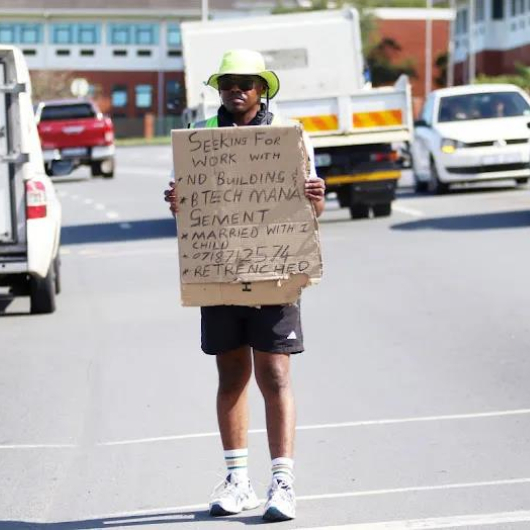 SEEKING FOR
WORK WITH
* ND BUILDING &
* BTECH MANA
GEMENT
* MARRIED WITH I
CHILD
* 0718712574
* RETRENCHED